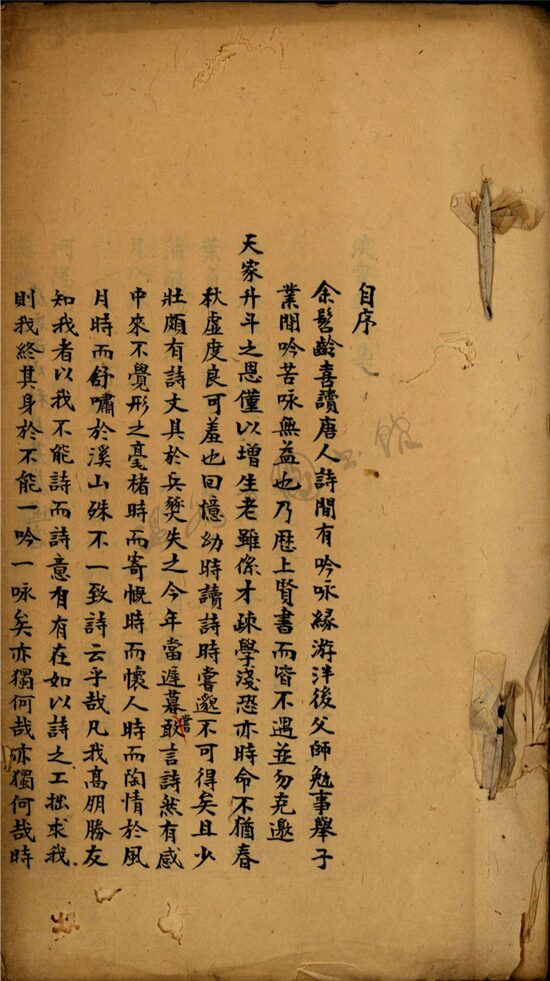 自序
余髫齡喜讀唐人詩間有吟咏緣游泮後父師勉事舉子
業閒吟苦咏無益也乃歷上賢書而皆不遇並勿克邀
天家升斗之恩僅以增生老雖係才疎學淺恐亦時命不猶春
秋虛度良可羞也回憶幼時讀詩時嘗邈不可得矣且少
壯頗有詩文具於兵燹失之今年當遲暮敢言詩然有感
中來不覺形之毫楮時而寄慨時而懷人時而陶情於風
月時而舒嘯於溪山殊不一致詩云乎哉凡我高朋勝友
知我者以我不能詩而詩意自有在如以詩之工拙求我
則我終其身於不能一吟一咏矣亦獨何哉亦獨何哉時